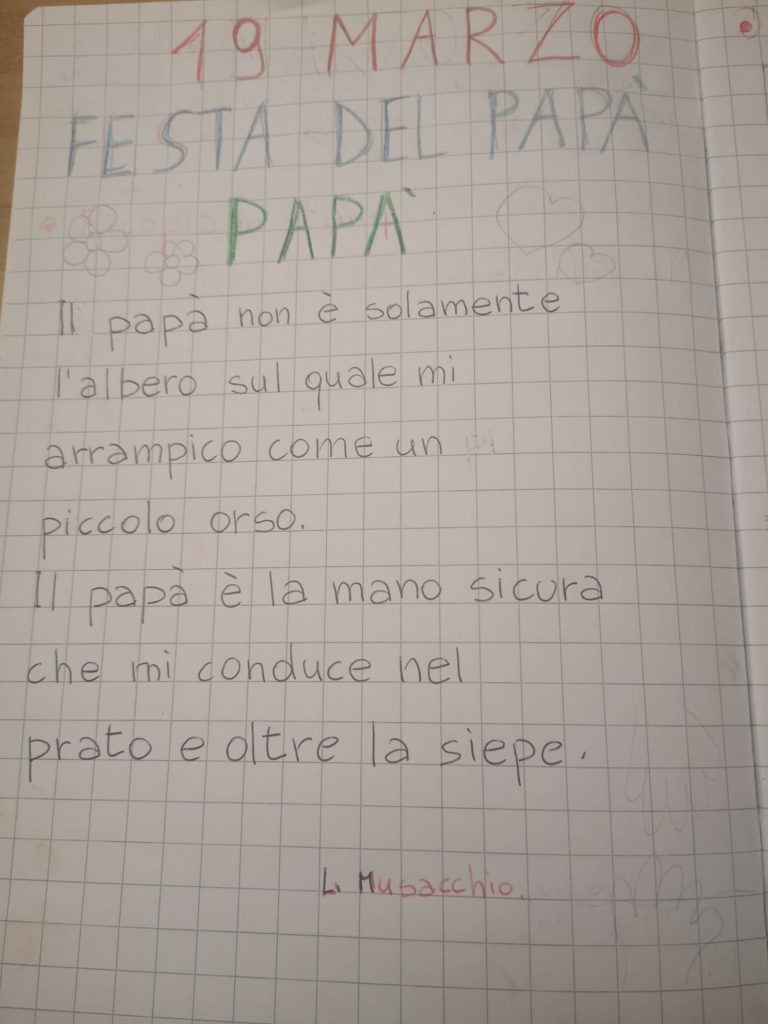 19 MARZO
FESTA DEL PAPÀ
PAPÀ
Il papà non è solamente
l'albero sul quale mi
arrampico come un
piccolo orso.
Il papà è la mano sicura
che mi conduce nel
prato e oltre la siepe.
L. Musacchio.